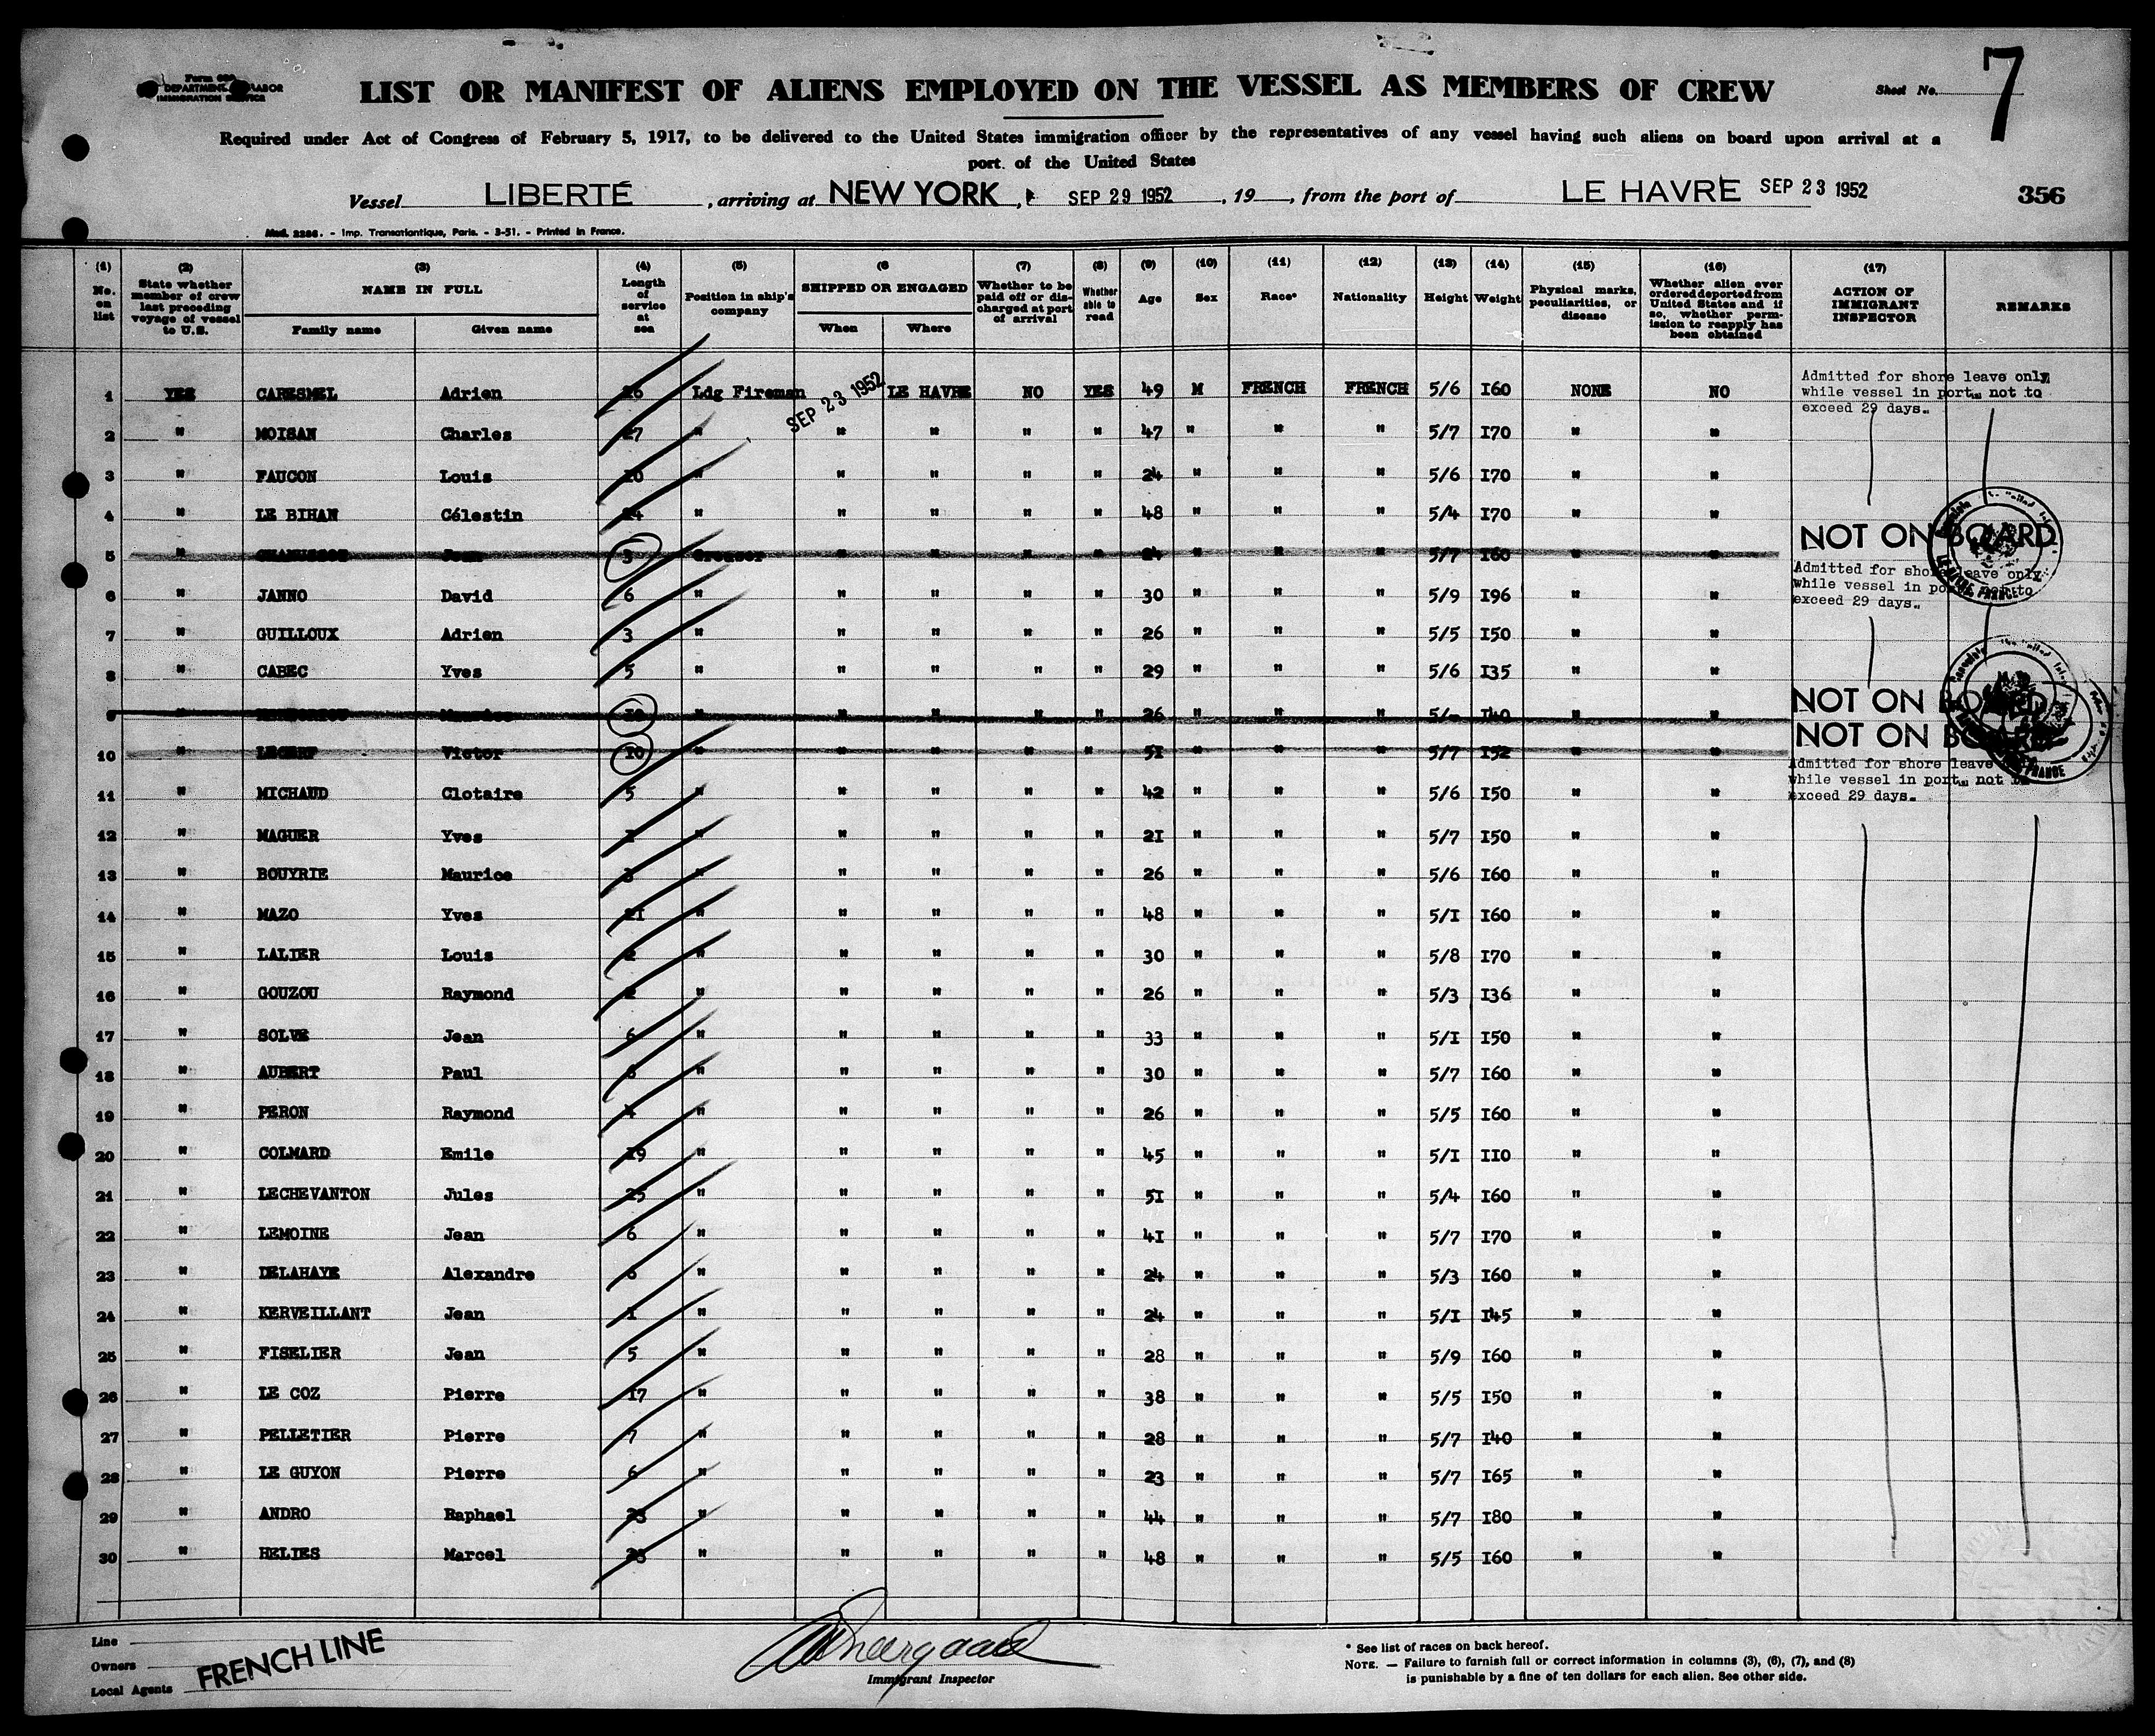 Form 680
DEPARTMENT OF LABOR
IMMIGRATION SERVICE
LIST OR MANIFEST OF ALIENS EMPLOYED ON THE VESSEL AS MEMBERS OF CREW
Sheet No. 7
Required under Act of Congress of February 5, 1917, to be delivered to the United States immigration officer by the representatives of any vessel having such aliens on board upon arrival at a
port of the United States
Vessel LIBERTÉ, arriving at NEW YORK, SEP 29 1952, 19, from the port of LE HAVRE SEP 23 1952
356
Mod. 2286. - Imp. Transatlantique, Paris. - 3-51. - Printed in France.
(1) No. on list (2) State whether member of crew last preceding voyage of vessel to U.S. (3) NAME IN FULL Family name Given name (4) Length of service at sea (5) Position in ship's company (6 SHIPPED OR ENGAGED When Where (7) Whether to be paid off or discharged at port of arrival (8) Whether able to read (9) Age (10) Sex (11) Race* (12) Nationality (13) Height (14) Weight (15) Physical marks, peculiarities, or disease (16) Whether alien ever ordered deported from United States and if so, whether permission to reapply has been obtained (17) ACTION OF IMMIGRANT INSPECTOR REMARKS
1 YES CARESMEL Adrien 26 Ldg Fireman SEP 23 1952 LE HAVRE NO YES 49 M FRENCH FRENCH 5/6 I60 NONE NO Admitted for shore leave only while vessel in port, not to exceed 29 days.
2 " MOISAN Charles 27 " " " " " 47 " " " 5/7 I70 " "
3 " FAUCON Louis 10 " " " " " 24 " " " 5/6 I70 " "
4 " LE BIHAN Célestin 24 " " " " " 48 " " " 5/4 I70 " "
5 " Jean 3 Greaser " " " " 24 " " " 5/7 I60 " " NOT ON BOARD
6 " JANNO David 6 " " " " " 30 " " " 5/9 I96 " " Admitted for shore leave only while vessel in port, not to exceed 29 days.
7 " GUILLOUX Adrien 3 " " " " " 26 " " " 5/5 I50 " "
8 " CABEC Yves 5 " " " " " 29 " " " 5/6 I35 " "
9 " Maurice " " " " " 26 " " " I40 " " NOT ON BOARD
10 " LECERF Victor 10 " " " " " 5I " " " 5/7 I52 " " NOT ON BOARD
11 " MICHAUD Clotaire 5 " " " " " 42 " " " 5/6 I50 " " Admitted for shore leave only while vessel in port, not to exceed 29 days.
12 " MAGUER Yves I " " " " " 2I " " " 5/7 I50 " "
13 " BOUYRIE Maurice 3 " " " " " 26 " " " 5/6 I60 " "
14 " MAZO Yves 2I " " " " " 48 " " " 5/I I60 " "
15 " LALIER Louis 2 " " " " " 30 " " " 5/8 I70 " "
16 " GOUZOU Raymond 2 " " " " " 26 " " " 5/3 I36 " "
17 " SOLVE Jean 6 " " " " " 33 " " " 5/I I50 " "
18 " AUBERT Paul 6 " " " " " 30 " " " 5/7 I60 " "
19 " PERON Raymond 4 " " " " " 26 " " " 5/5 I60 " "
20 " COLMARD Emile 19 " " " " " 45 " " " 5/I II0 " "
21 " LECHEVANTON Jules 25 " " " " " 5I " " " 5/4 I60 " "
22 " LEMOINE Jean 6 " " " " " 4I " " " 5/7 I70 " "
23 " DELAHAYE Alexandre 6 " " " " " 24 " " " 5/3 I60 " "
24 " KERVEILLANT Jean I " " " " " 24 " " " 5/I I45 " "
25 " FISELIER Jean 5 " " " " " 28 " " " 5/9 I60 " "
26 " LE COZ Pierre I7 " " " " " 38 " " " 5/5 I50 " "
27 " PELLETIER Pierre 7 " " " " " 28 " " " 5/7 I40 " "
28 " LE GUYON Pierre 6 " " " " " 23 " " " 5/7 I65 " "
29 " ANDRO Raphael 23 " " " " " 44 " " " 5/7 I80 " "
30 " HELIES Marcel 28 " " " " " 48 " " " 5/5 I60 " "
Line
Owners FRENCH LINE
Local Agents
Immigrant Inspector
* See list of races on back hereof.
NOTE. — Failure to furnish full or correct information in columns (3), (6), (7), and (8)
is punishable by a fine of ten dollars for each alien. See other side.